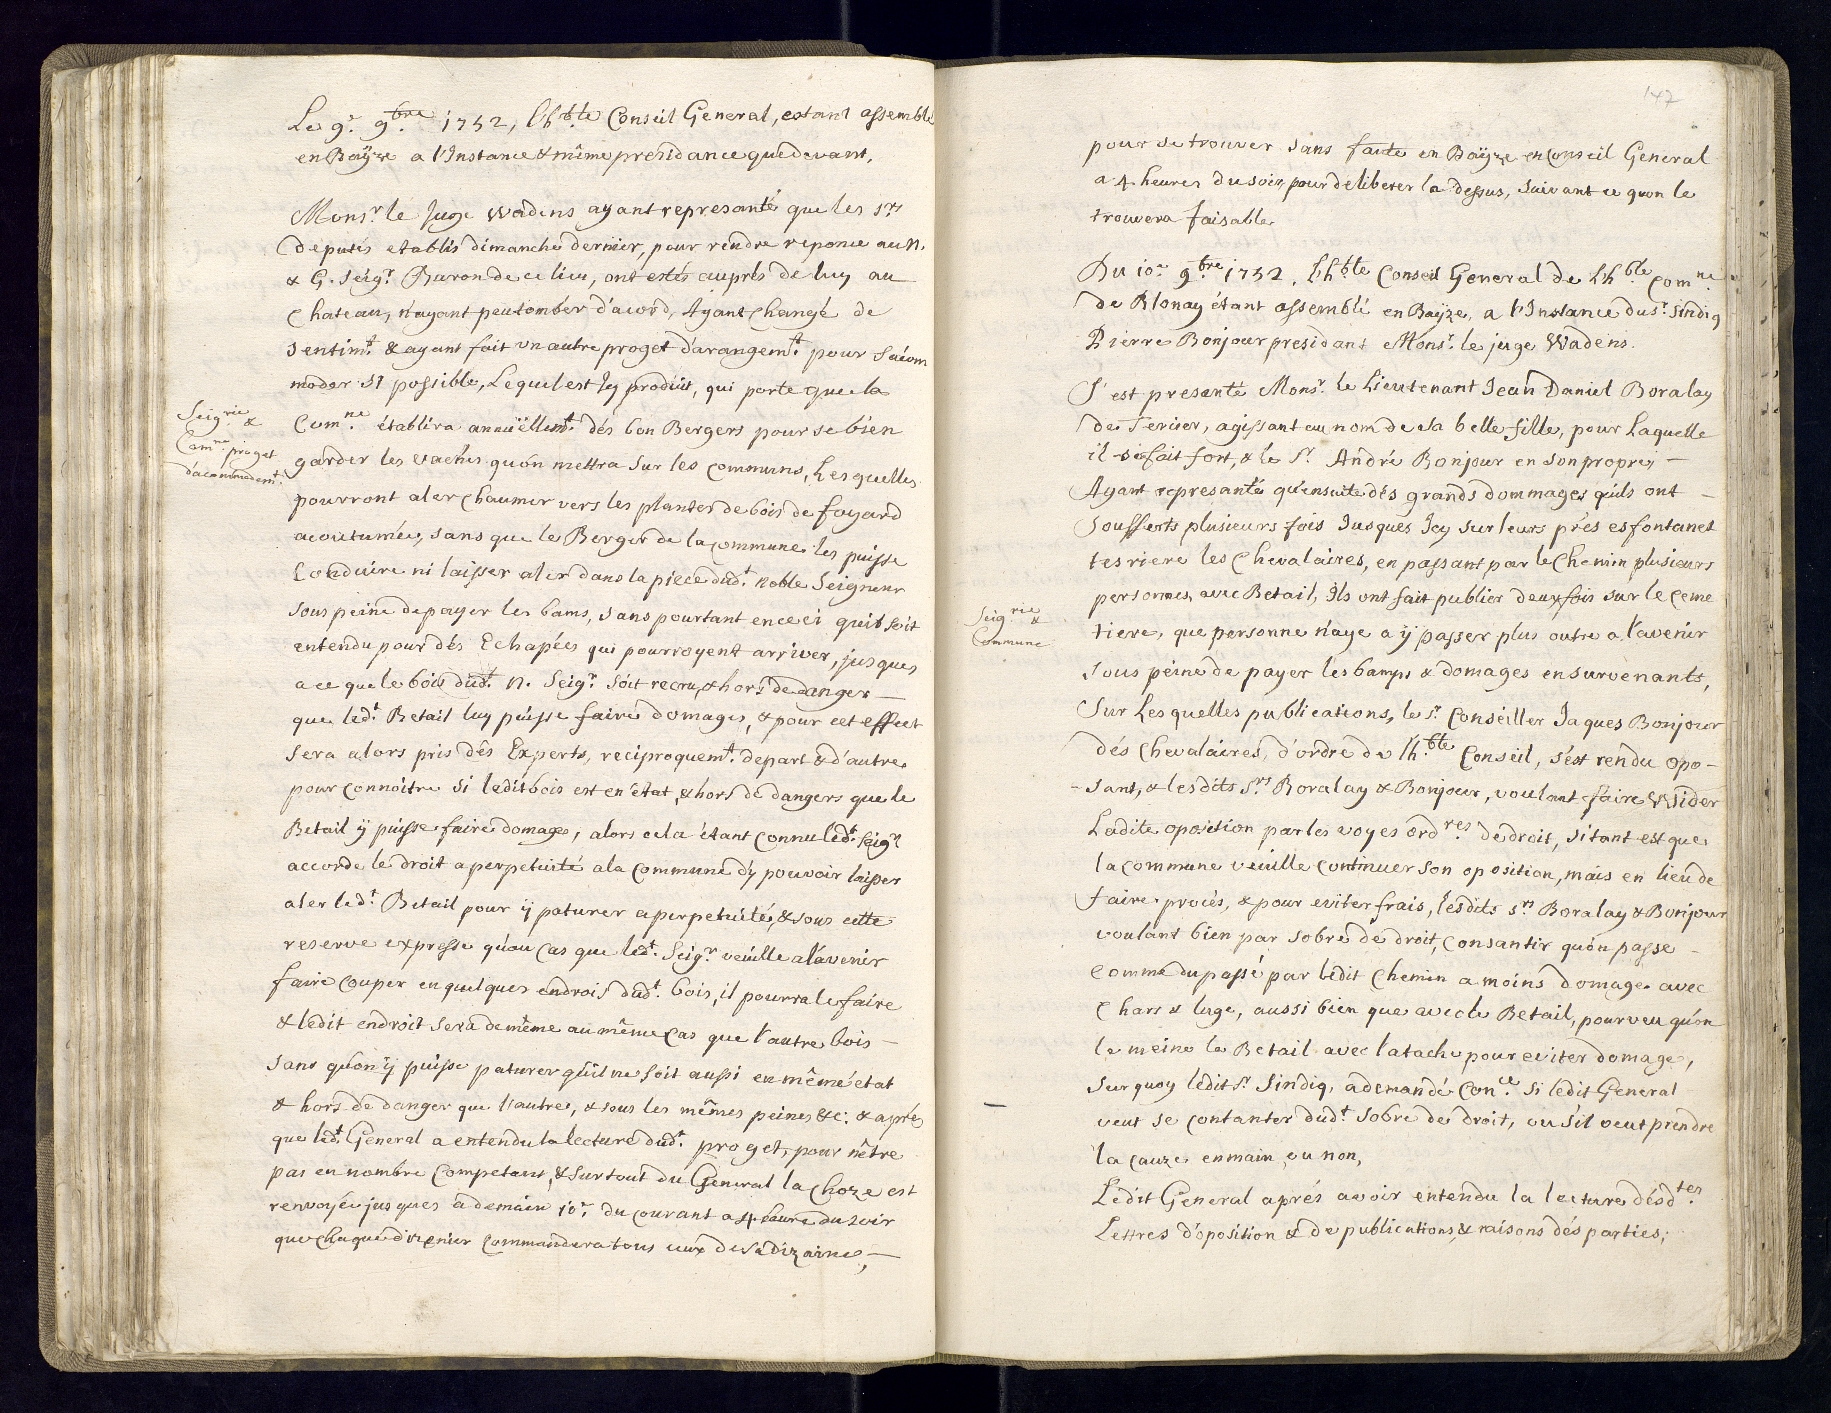 Le 9.e 9bre. 1732, l'hble Conseil General, estant assemblé
en Baÿze a l'Instance & même presidance que devant,
Monsr. le Juge Wadens ayant represanté que les Srs
deputés etablis dimanche dernier, pour rendre reponce au N.
& G. Seigr. Baron de ce lieu, ont estés auprés de luy au
Chateau, n'ayant peu tomber d'acord, Ayant changé de
sentimt. & ayant fait un autre proget d'arangemt. pour s'acom
moder si possible, Lequel est Icy produit, qui porte que la
Seigrie. &
Comne. proget
d'acommodemt.
Comne. établira annuëllemt. dés bon Bergers pour se bien
garder les vaches qu'on mettra sur les communs, Lesquelles
pourront aler chaumer vers les plantes de bois de foyard
acoutumée, sans que le Berger de la commune les puisse
Conduire ni laisser aler dans la piece dudt. noble Seigneur
sous peine de payer les bams, sans pourtant en ceci qu'il soit
entendu pour dés Echapées qui pourroyent arriver, jusques
a ce que le bois dudt. N. Seigr. soit recru, & hors de danger
que ledt. Betail luy puisse faire domages, & pour cet effect
sera alors pris dés Experts, reciproquemt. de part & d'autre
pour connoitre si ledit bois est en état, & hors de dangers que le
Betail ÿ puisse faire domages, alors cela étant connu ledt. Seigr.
accorde le droit a perpetuité a la commune d'y pouvoir laisser
aler ledt. Betail pour ÿ paturer a perpetuité, & sous cette
reserve expresse qu'au cas que ledt. Seigr. veuille a l'avenir
faire couper en quelques endrois dudt. bois, il pourra le faire
& ledit endroit sera de même au même cas que l'autre bois
sans qu'on ÿ puisse paturer qu'il ne soit aussi en même état
& hors de danger que l'autre, & sous les mêmes peines &c: & aprés
que ledt. General a entendu la lecture dudt. proget, pour n'être
pas en nombre competant, & surtout du General la choze est
renvoyée jusques a demain 10e. du courant a 4 heure du soir
que chaque dizenier commandera tous ceux de sa dizaine,
147
pour se trouver sans faute en Baÿze en Conseil General
a 4 heures du soir, pour deliberer la dessus, suivant ce qu'on le
trouvera faisable.
Du 10e. 9bre 1732. L'hble Conseil General de Lhble. Comne.
de Blonay étant assemblé en Baÿze, a l'Instance du sr. Sindiq
Pierre Bonjour presidant Monsr. le juge Wadens.
S'est presanté Monsr. le Lieutenant Jean Daniel Boralay
de Ferier, agissant au nom de sa belle fille, pour Laquelle
il se fait fort, & le Sr. André Bonjour en son propre,
Ayant represanté qu'ensuite dés grands dommages qu'ils ont
soufferts plusieurs fois Jusques Icy sur leurs prés es fontanet
tes riere les Chevalaires, en passant par le Chemin plusieurs
personnes, avec Betail, Ils ont fait publier deux fois sur le Ceme
Seigrie. &
Commune
tiere, que personne n'aye a ÿ passer plus outre a l'avenir
sous peine de payer les bamps & domages en survenants,
Sur Lesquelles publications, le sr. Conseiller Jaques Bonjour
dés Chevalaires, d'ordre de l'hble. Conseil, s'est rendu opo-
-sant, & lesdits Srs Boralay & Bonjour, voulant faire Wsider
Ladite oposition par les voyes ordres. de droit, si tant est que
la commune veuille continuer son oposition, mais en lieu de
faire procés, & pour eviter frais, lesdits srs Boralay & Bonjour
voulant bien par sobre de droit, consantir qu'on passe
comme du passé par ledit Chemin a moins domage avec
Chars & luge, aussi bien que avec le Betail, pourveu qu'on
le meine le Betail avec l'atache pour eviter domage,
sur quoy ledit Sr. Sindiq, a demandé Conce. si ledit General
veut se contanter dudt. sobre de droit, ou s'il veut prendre
la cauze en main, ou non,
Ledit General aprés avoir entendu la lecture désdtes
Lettres d'oposition & de publications, & raisons dés parties,